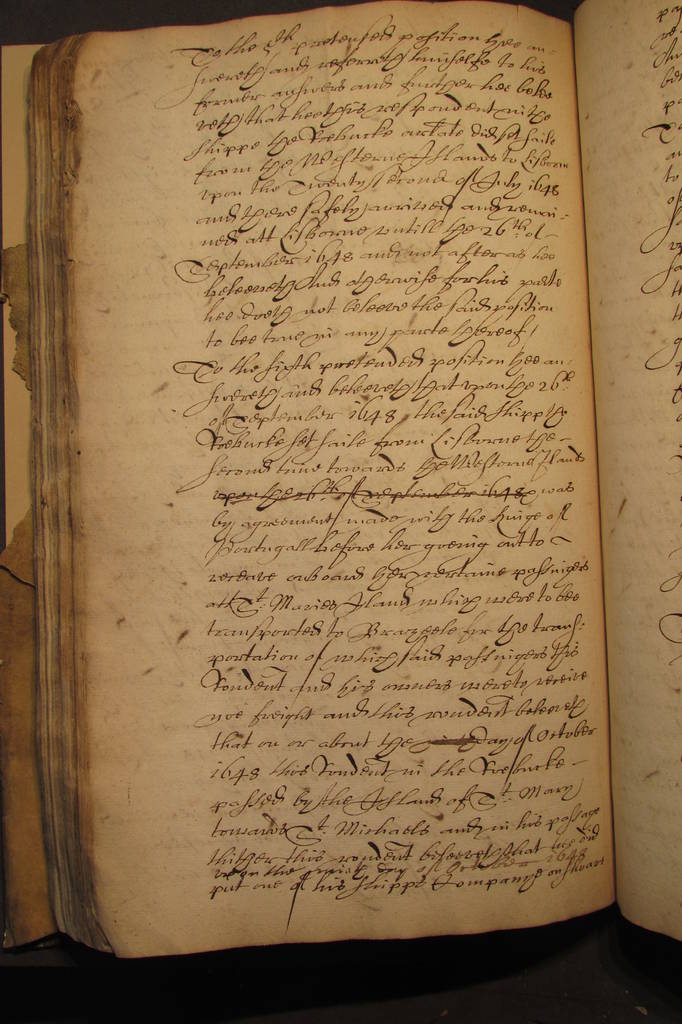 To the 5th pretended position hee an=
swereth and referreth himselfe to his
former answers and further hee belee
veth that hee this respondent in the
shippe the Roebucke arlate did set saile
from the Westerne Islands to Lisborne
upon the Twenty second of July 1648
and there safely arrived and remai=
ned att Lisborne untill the 26th of
September 1648 and not after as hee
beleeveth And otherwise for his parte
hee doeth not beleeve the said position
to bee true in any parte thereof /
To the sixth pretended position hee an=
swereth and beleeveth that upon the 26th
of September 1648 the said shipp the
Roebucke set saile from Lisborne the
second time towards the Westerne Islands
upon the 26th of September 1648 was
by agreement made with the Kinge of
Portugall before her goeing out to
receave onboard her certaine passingers
att St. Maries Island which were to bee
transported to Brazeele for the trans=
portation of which said passingers this
Rondent and his owners were to receive
noe freight and this rondent beleeveth
that on or about the day of October
1648 this Rondent in the Roebucke
passed by the Island of St. Mary
towards St. Michaels and in his passage
thither this rondent beleeveth that hee did
upon the day of October 1648
put one of his shipps Company on shoare